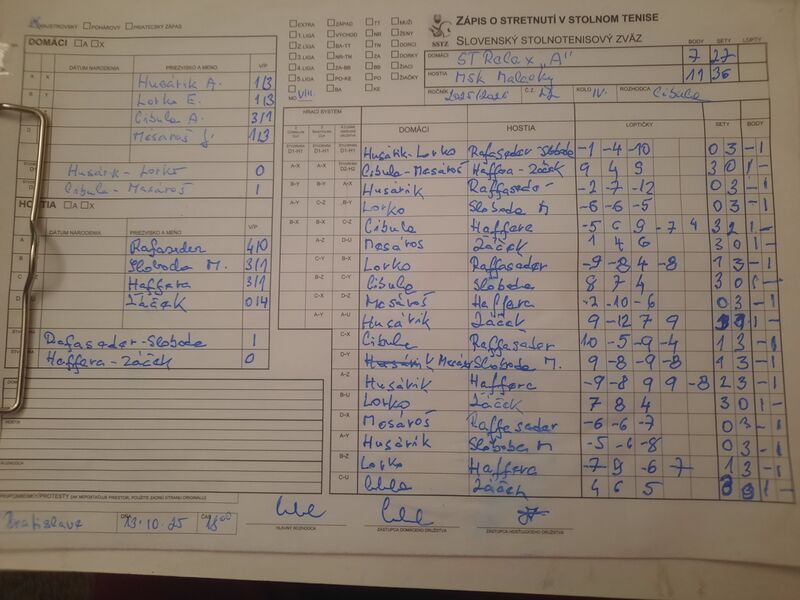 MAJSTROVSKÝ POHÁROVÝ PRIATEĽSKÝ ZÁPAS
DOMÁCI A X
DÁTUM NARODENIA PRIEZVISKO A MENO V/P
A X Husárik A. 1/3
B Y Lorko E. 1/3
C Cibula A. 3/1
D Mesároš J. 1/3
Husárik - Lorko 0
Cibula - Mesároš 1
HOSTIA A X
DÁTUM NARODENIA PRIEZVISKO A MENO V/P
A Rafaseder 4/0
B Sloboda M. 3/1
C Haffera 3/1
D Záček 0/4
Rafaseder - Sloboda 1
Haffera - Záček 0
HOSTIA
ROZHODCA
PRIPOMIENKY/PROTESTY (AK NEPOSTAČUJE PRIESTOR, POUŽITE ZADNÚ STRANU ORIGINÁLU)
Bratislava DŇA 13.10.25 ČAS 18:00
HLAVNÝ ROZHODCA
ZÁSTUPCA DOMÁCEHO DRUŽSTVA
ZÁSTUPCA HOSŤUJÚCEHO DRUŽSTVA
EXTRA ZÁPAD TT MUŽI
1. LIGA VÝCHOD NR ŽENY
2. LIGA BA-TT TN DORCI
3. LIGA NR-TN ZA DORKY
4. LIGA ZA-BB BB ŽIACI
5. LIGA PO-KE PO ŽIAČKY
MO VIII. BA KE
SSTZ
ZÁPIS O STRETNUTÍ V STOLNOM TENISE
SLOVENSKÝ STOLNOTENISOVÝ ZVÄZ
BODY SETY LOPTY
DOMÁCI ST Relax "A" 7 27
HOSTIA MSK Malacky 11 36
ROČNÍK 2025/2026 Č.Z. KOLO IV. ROZHODCA Cibula
HRACÍ SYSTÉM
DOMÁCI HOSTIA LOPTIČKY SETY BODY
D1-H1 D1-H1 D1-H1 Husárik-Lorko Rafaseder-Sloboda -1 -4 -10 0 3 - 1
A-X A-X D2-H2 Cibula-Mesároš Haffera-Záček 9 4 9 3 0 1 -
B-Y B-Y A-X Husárik Raffaseder -2 -7 -12 0 3 - 1
A-Y C-Z B-Y Lorko Sloboda M -6 -6 -5 0 3 - 1
B-X B-X C-Z Cibula Haffera -5 6 9 -7 4 3 2 1 -
A-Z D-U Mesároš Záček 1 4 6 3 0 1 -
C-Y B-X Lorko Raffaseder -9 -8 4 -8 1 3 - 1
B-Z C-Y Cibula Sloboda 8 7 4 3 0 1 -
C-X D-Z Mesároš Haffera -2 -10 -6 0 3 - 1
A-Y A-U Husárik Záček 9 -12 7 9 3 1 1 -
C-X Cibula Raffaseder 10 -5 -9 -4 1 3 - 1
D-Y Mesároš Sloboda M. 9 -8 -9 -8 1 3 - 1
A-Z Husárik Haffera -9 -8 9 9 -8 2 3 - 1
B-U Lorko Záček 7 8 4 3 0 1 -
D-X Mesároš Raffaseder -6 -6 -7 0 3 - 1
A-Y Husárik Sloboda M -5 -6 -8 0 3 - 1
B-Z Lorko Haffera -7 9 -6 -7 1 3 - 1
C-U Cibula Záček 4 6 5 3 0 1 -